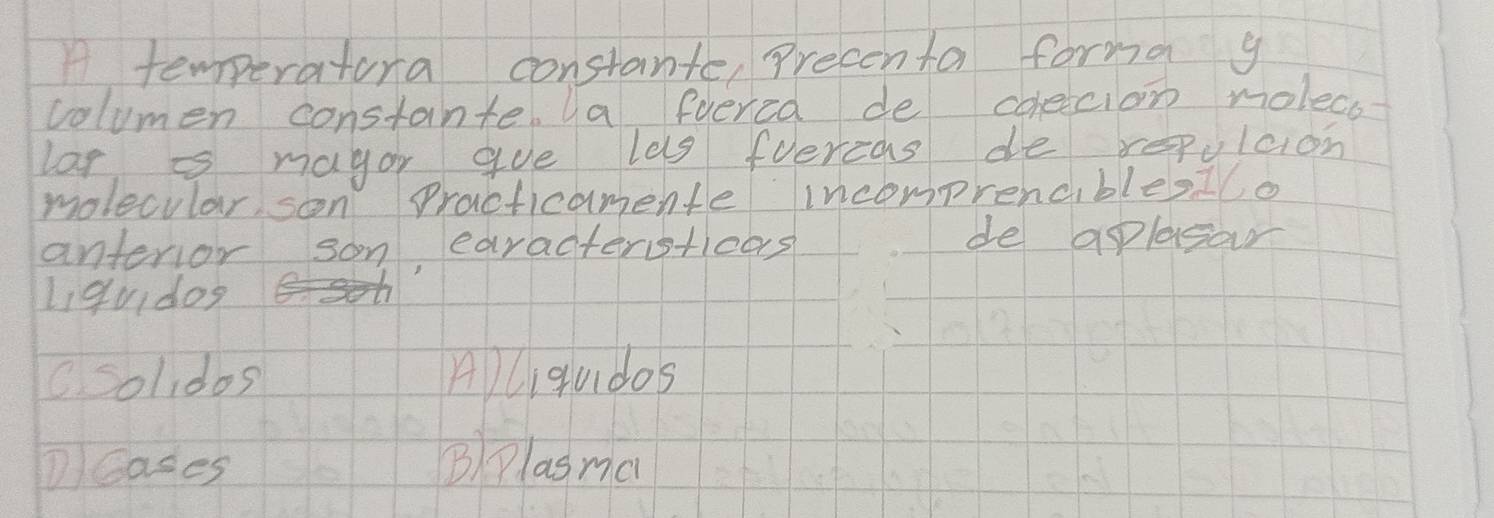 A temperatura constante, Precenta forma y
volumen constante. La fuerza de coecion molecu-
lar es mayor que las fuerzas de repulcion
molecular. son Practicamente incomprencibles Lo
anterior son, caracteristicas de aplasar
Liquidos
C. Solidos A) Liquidos
D) Gases B) Plasma